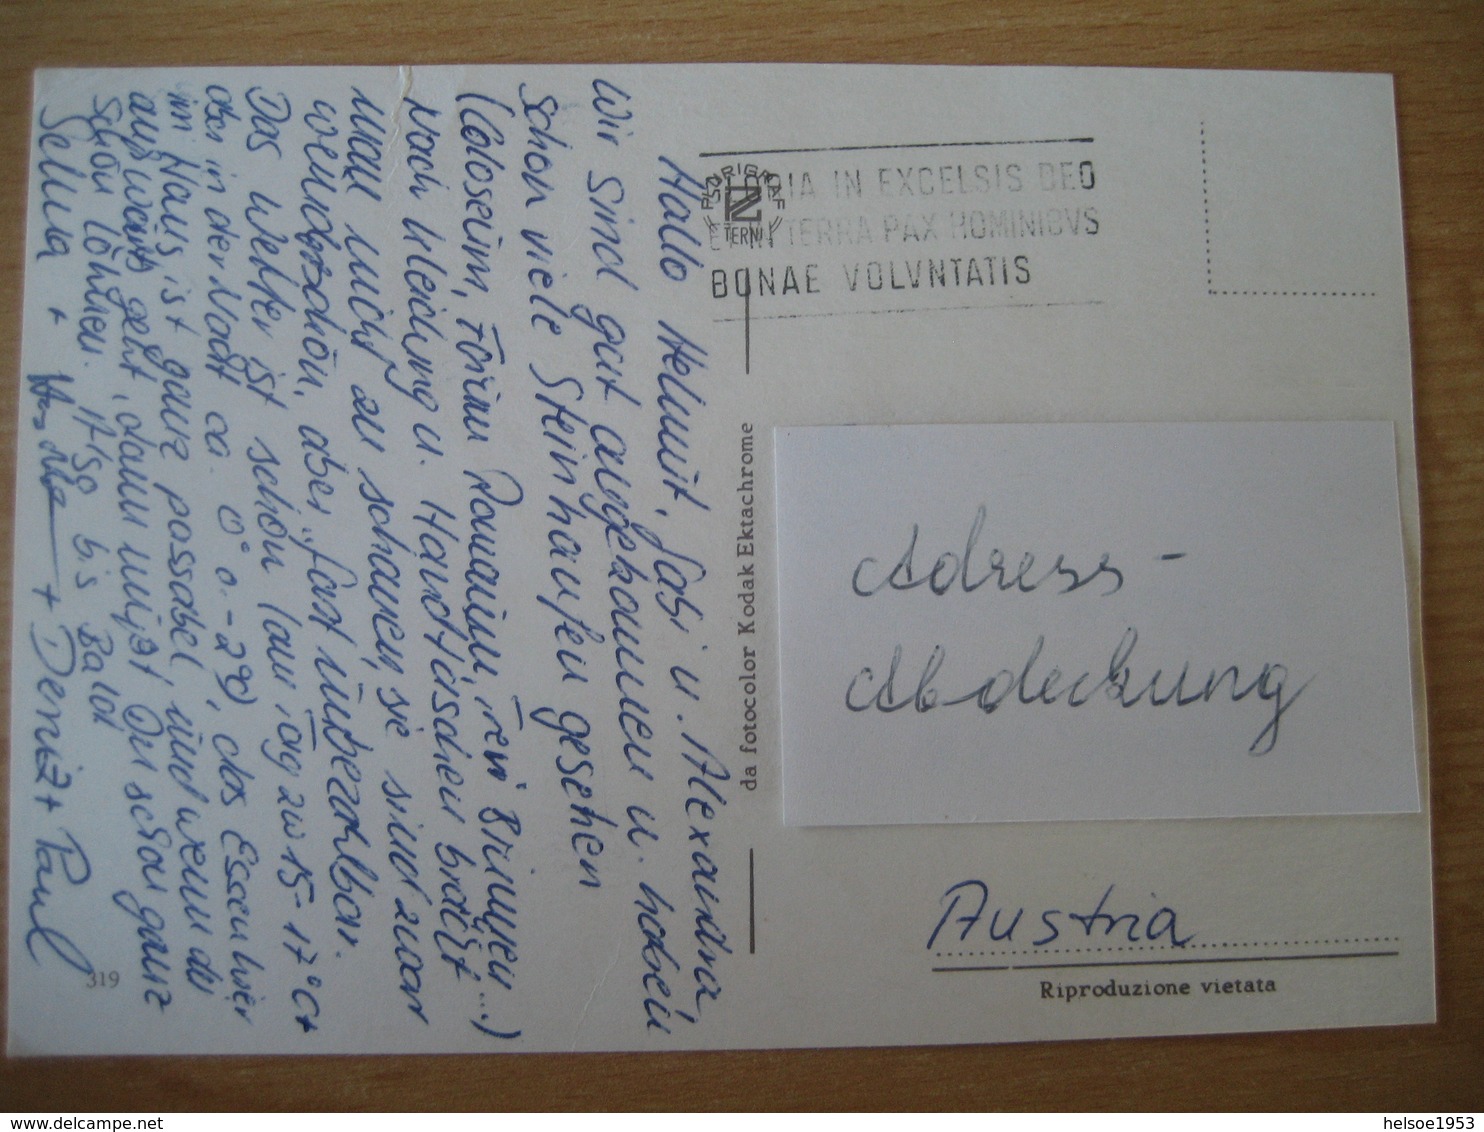 Hallo Helmut, Gabi u. Alexandra,
Wir sind gut angekommen u. haben
schon viele Steinhaufen gesehen
(Coloseum, Forum Romanum, Trevi Brunnen ...)
Nach Kleidung u. Handtaschen brauchst
man nicht zu schauen, sie sind zwar
wunderschön, aber "fast" unbezahlbar.
Das Wetter ist schön (am Tag zw 15-17°C
aber in der Nacht ca. 0° o. -2°), das Essen hier
im Haus ist ganz passabel, und wenn du
auswärts gehst, dann mußt Du schon ganz
schön löhnen. Also bis Bald
Selma + + Deniz + Paul
319
da fotocolor Kodak Ektachrome
PLURIGRAF
N
TERNI
GLORIA IN EXCELSIS DEO
ET IN TERRA PAX HOMINIBVS
BONAE VOLVNTATIS
Adress-
Abdeckung
Austria
Riproduzione vietata
helsoe1953